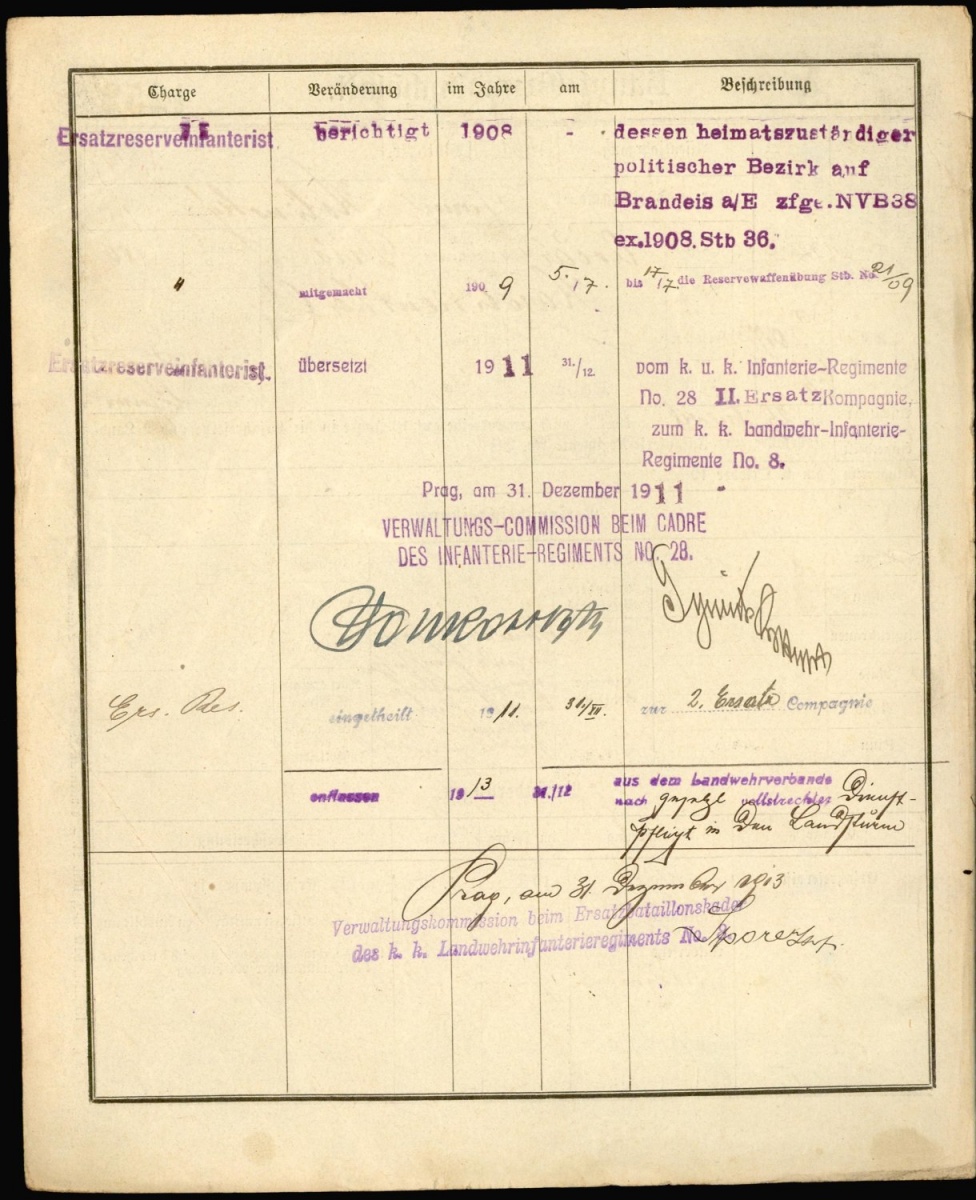 Charge Veränderung im Jahre am Beschreibung
Ersatzreserveinfanterist berichtigt 1908 - dessen heimatszuständiger
politischer Bezirk auf
Brandeis a/E zfge. NVB38
ex.1908. Stb 36.
" mitgemacht 1909 5./17. bis 17/17. die Reservewaffenübung Stb. No. 21/09
Ersatzreserveinfanterist. übersetzt 1911 31./12. vom k. u. k. Infanterie-Regimente
No. 28 II. Ersatz Kompagnie,
zum k. k. Landwehr-Infanterie-
Regimente No. 8.
Prag, am 31. Dezember 1911
VERWALTUNGS-COMMISSION BEIM CADRE
DES INFANTERIE-REGIMENTS NO. 28.
Ers. Res. eingetheilt 1911. 31./XII. zur 2. Ersatz Compagnie
entlassen 1913 31./12 aus dem Landwehrverbande
nach gesetzl vollstreckter Dienst-
pflicht in den Landsturm
Prag, am 31. Dezember 1913
Verwaltungskommission beim Ersatzbataillonskader
des k. k. Landwehrinfanterieregiments No. 8